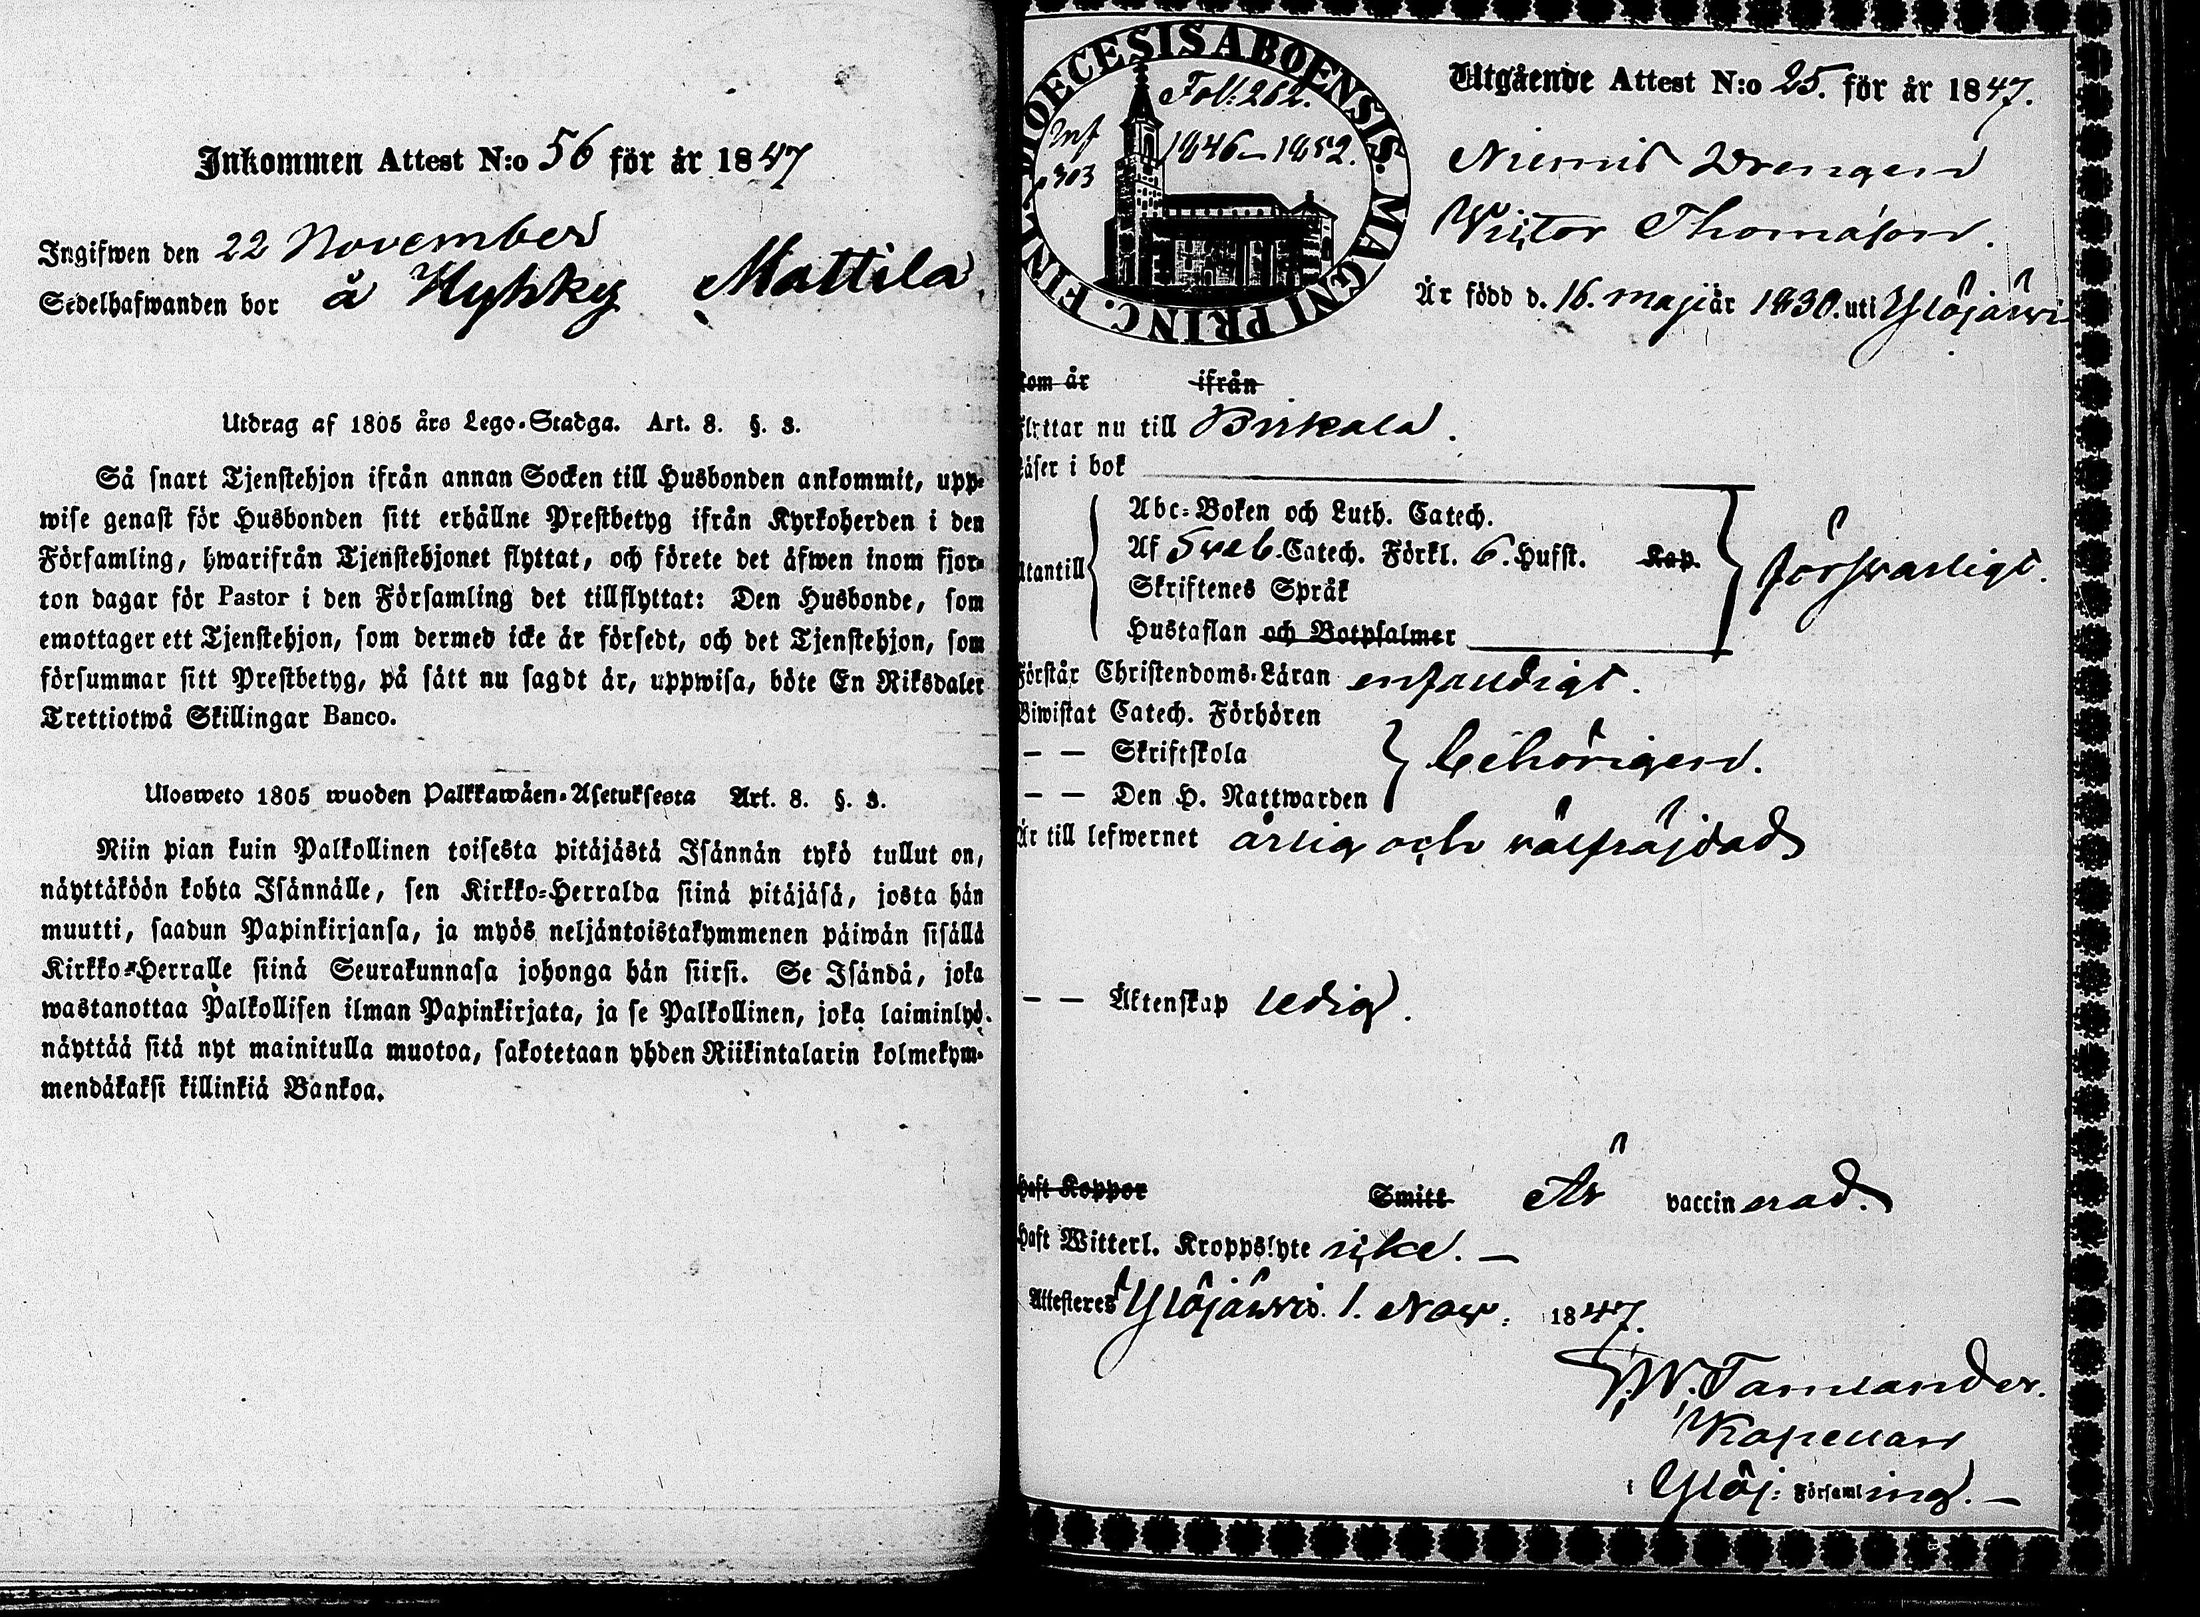 Inkommen Attest N:o 56 för år 1847
Ingifwen den 22 November
Sedelhafwanden bor å Hyhky Mattila
Utdrag af 1805 års Lego-Stadga. Art. 8. §. 3.
Så snart Tjenstehjon ifrån annan Socken till Husbonden ankommit, upp-
wise genast för Husbonden sitt erhållne Prestbetyg ifrån Kyrkoherden i den
Församling, hwarifrån Tjenstehjonet flyttat, och förete det äfwen inom fjor-
ton dagar för Pastor i den Församling det tillflyttat: Den Husbonde, som
emottager ett Tjenstehjon, som dermed icke är försedt, och det Tjenstehjon, som
försummar sitt Prestbetyg, på sätt nu sagdt är, uppwisa, böte En Riksdaler
Trettiotwå Skillingar Banco.
Ulosweto 1805 wuoden Palkkawäen-Asetuksesta Art. 8. §. 3.
Niin pian kuin Palkollinen toisesta pitäjästä Isännän tykö tullut on,
näyttäköön kohta Isännälle, sen Kirkko-Herralda siinä pitäjäsä, josta hän
muutti, saadun Papinkirjansa, ja myös neljäntoistakymmenen päiwän sisällä
Kirkko-Herralle siinä Seurakunnasa johonga hän siirsi. Se Isändä, joka
wastanottaa Palkollisen ilman Papinkirjata, ja se Palkollinen, joka laiminlyö
näyttää sitä nyt mainitulla muotoa, sakotetaan yhden Riikintalarin kolmekym-
mendäkaksi killinkiä Bankoa.
DIOECESIS ABOENSIS. MAGNI PRINC. FINL.
Fol: 262.
Inf 1846–1852.
p 303
Utgående Attest N:o 25. för år 1847.
Niemis Drengen
Victor Thomasson.
Är född d. 16. maji år 1830. uti Ylöjärvi
kom år ifrån
Flyttar nu till Birkala.
Läser i bok
Utantill
Abc-Boken och Luth. Catech.
Af Sveb. Catech. Förkl. 6. Hufst. Kap.
Skriftenes Språk
Hustaflan och Botpsalmer
försvarligt.
Förstår Christendoms-Läran enfaldigt.
Biwistat Catech. Förhören
– – Skriftskola
– – Den H. Nattwarden
behörigen.
Är till lefwernet ärlig och välfräjdad
– – Äktenskap ledig.
Haft Koppor Smitt Är vaccinerad.
Haft Witterl. Kroppslyte icke. –
Attesteres Ylöjärvi. 1. Nov: 1847.
W. Tamlander.
Kapellan
i Ylöj: Församling. –